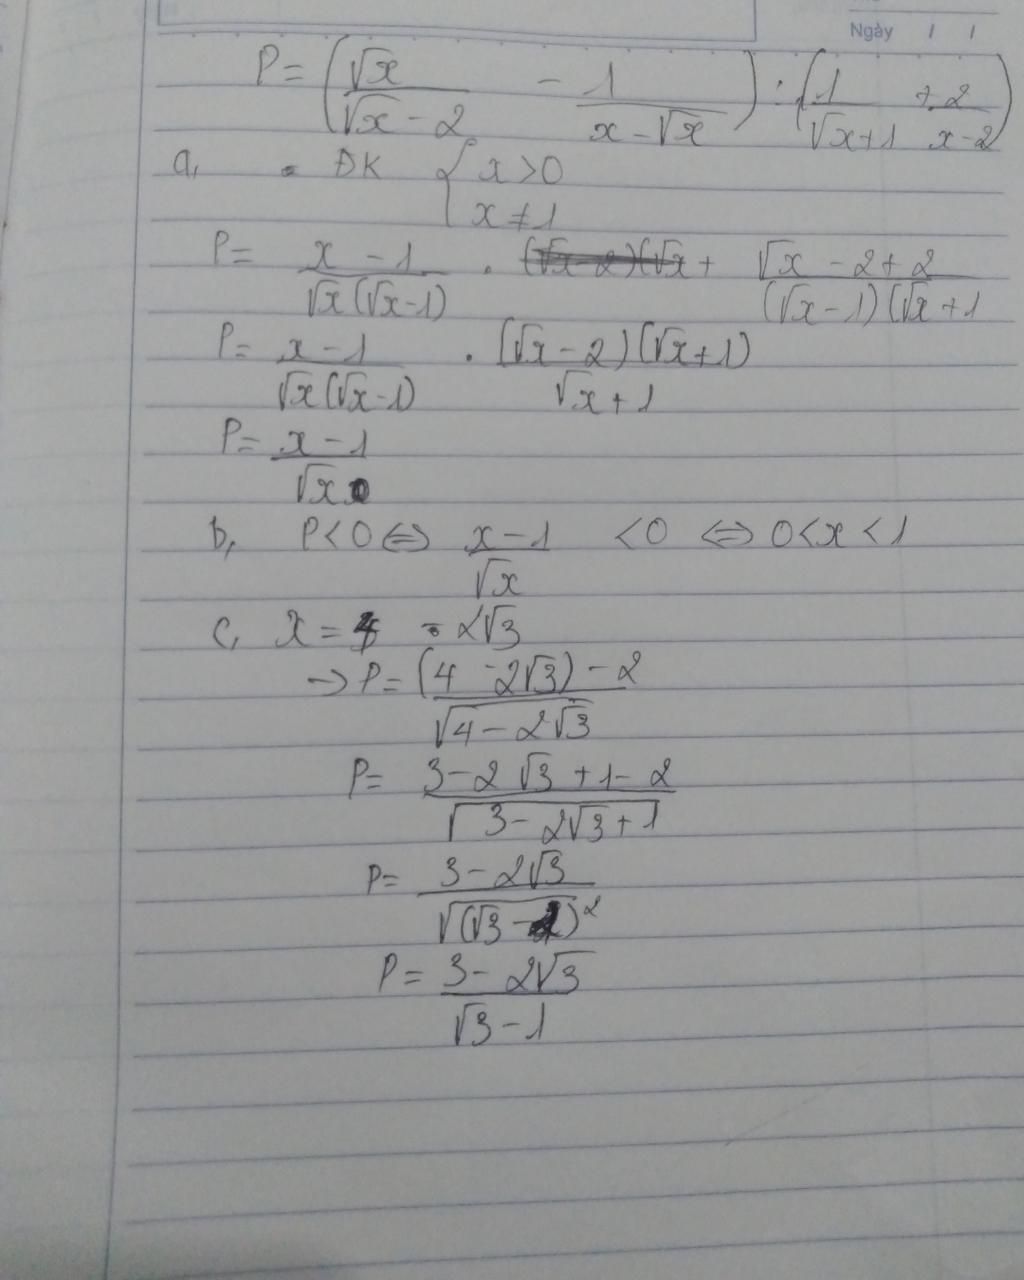 Ngày / /
P = (√x/(√x - 2) - 1/(x - √x)) : (1/(√x + 1) + 2/(x - 2))
a, ĐK { x > 0
x ≠ 1
P = (x - 1)/(√x(√x - 1)) . + (√x - 2 + 2)/((√x - 1)(√x + 1
P = (x - 1)/(√x(√x - 1)) . ((√x - 2)(√x + 1))/(√x + 1)
P = (x - 1)/√x
b, P < 0 ⇔ (x - 1)/√x < 0 ⇔ 0 < x < 1
c, x = 4 - 2√3
→ P = ((4 - 2√3) - 2)/√(4 - 2√3)
P = (3 - 2√3 + 1 - 2)/√(3 - 2√3 + 1)
P = (3 - 2√3)/√((√3 - 1)²)
P = (3 - 2√3)/(√3 - 1)